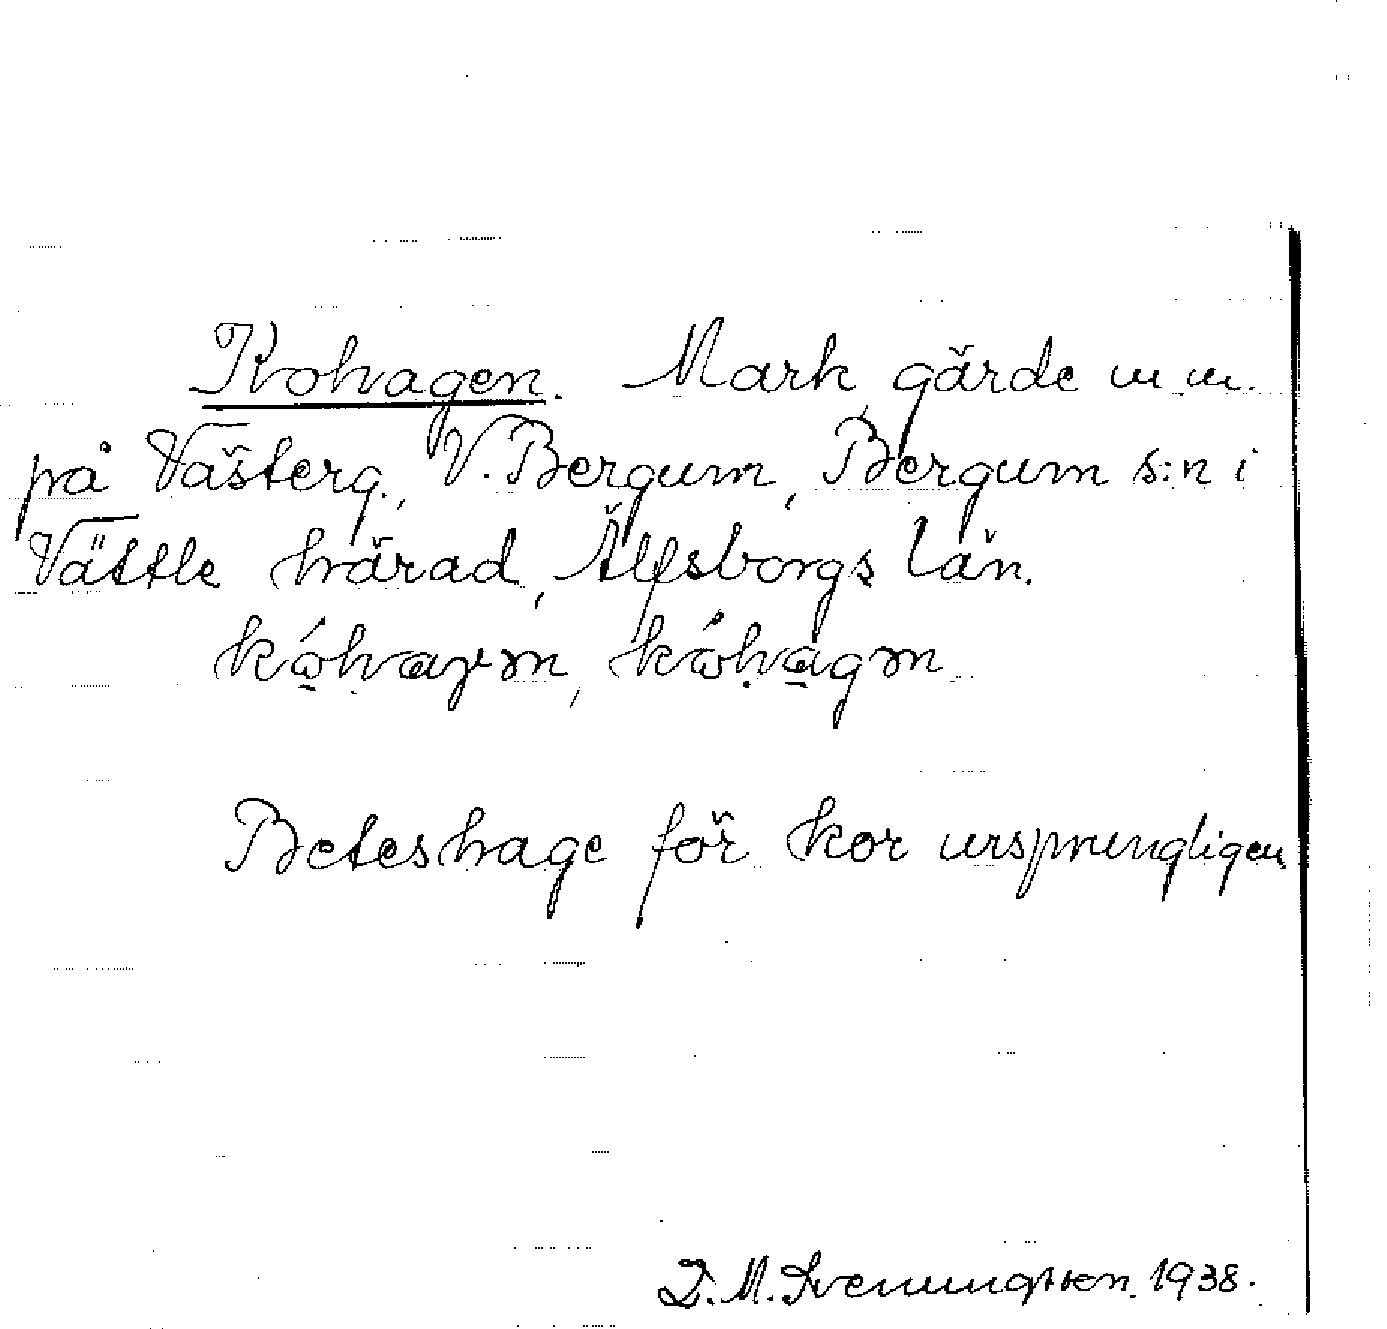 Kohagen. Mark, gärde m.m.
på Västerg., V. Bergum, Bergum s:n i
Vättle härad, Älfsborgs län.
kóhaγm, kóhagm
Beteshage för kor ursprungligen
D. M. Svenungsson. 1938.